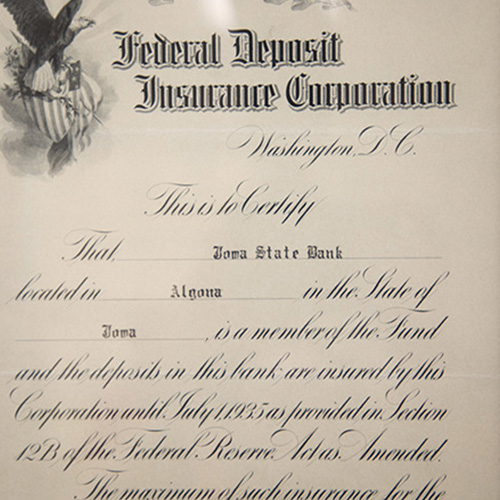 Federal Deposit
Insurance Corporation
Washington, D.C.
This is to Certify
That, Iowa State Bank
located in Algona in the State of
Iowa, is a member of the Fund
and the deposits in this bank are insured by this
Corporation until July 1, 1935 as provided in Section
12B of the Federal Reserve Act as Amended.
The maximum of such insurance for the